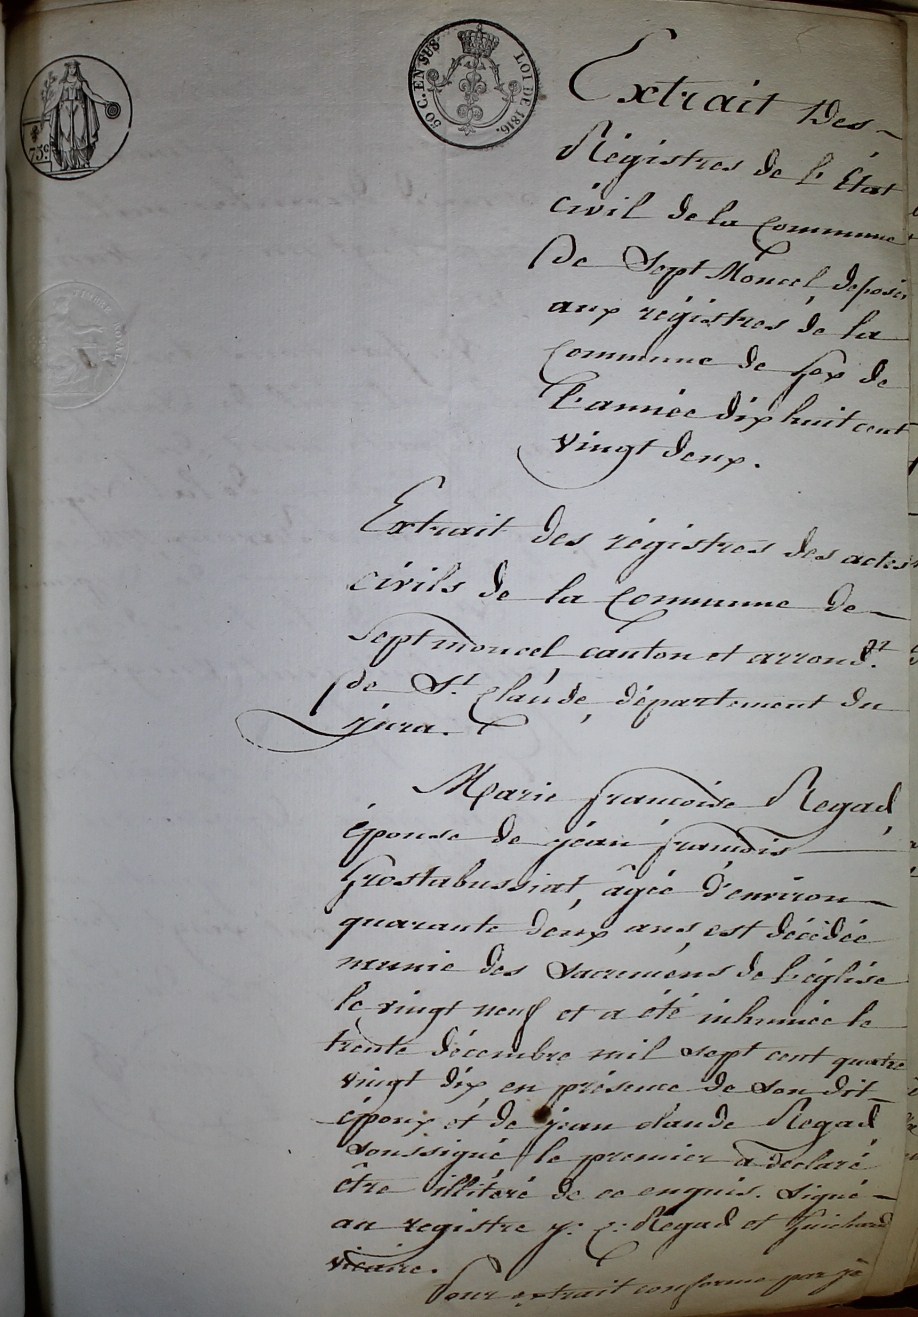 75c
50 C. EN SUS LOI DE 1816.
Extrait Des
Régistres de l'État
civil de la Commune
De Sept Moncel déposés
aux régistres de la
Commune de Gex de
l'année dix huit cent
vingt deux.
Extrait des régistres des actes
civils de la Commune de
Septmoncel, canton et arrond.nt
de St. Claude, département du
jura.
Marie françoise Regad
épouse de jean françois
Grostabussiat, âgée d'environ
quarante deux ans, est décédée
munie des sacremens de l'église
le vingt neuf et a été inhumée le
trente décembre mil sept cent quatre
vingt dix en présence de son dit
époux et de jean claude Regad
soussigné le premier a déclaré
être illitéré de ce enquis. Signé
au registre j: C: Regad et Guichard
vicaire.
Pour extrait conforme par je